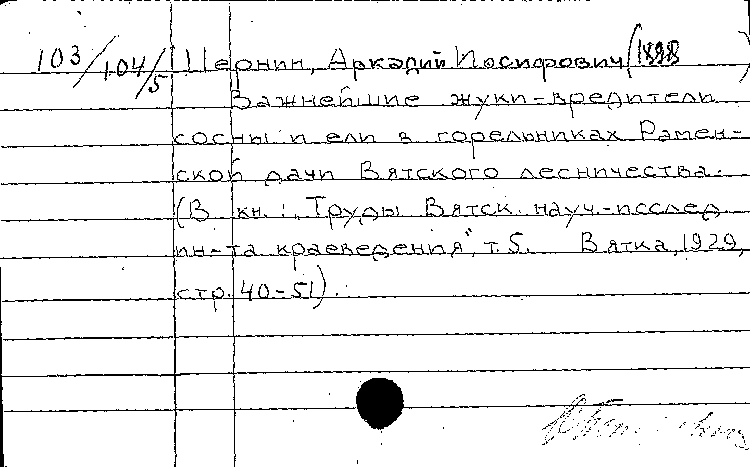 103/104/5 Чернин, Аркадий Иосифович (1898
Важнейшие жуки-вредители
сосны и ели в горельниках Рамен-
ской дачи Вятского лесничества.
(В кн.: "Труды Вятск. науч.-исслед
ин-та краеведения", т. 5. Вятка, 1929,
стр. 40-51).